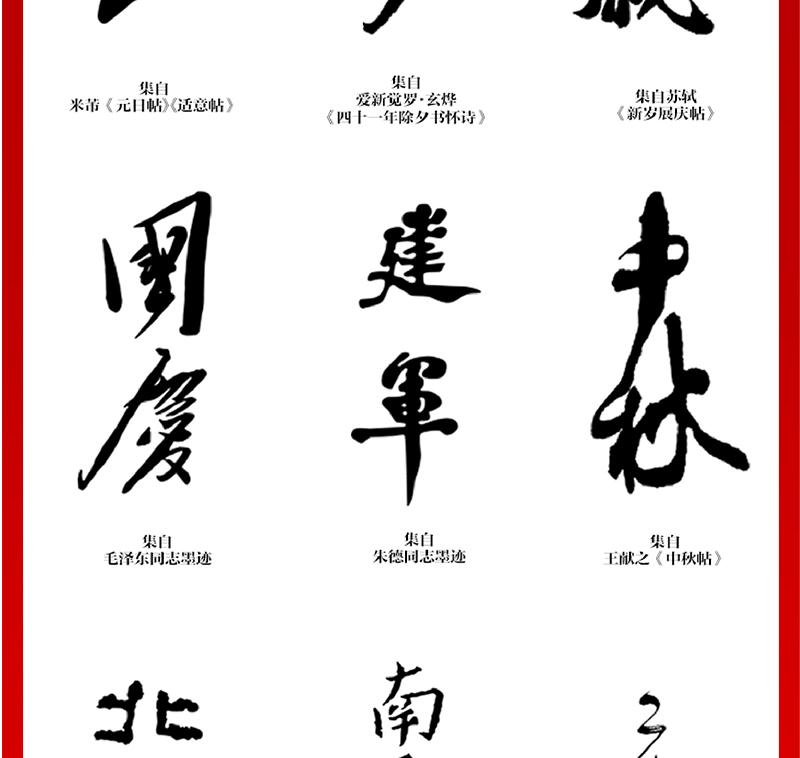 集自
米芾《元日帖》《适意帖》
集自
爱新觉罗·玄烨
《四十一年除夕书怀诗》
集自苏轼
《新岁展庆帖》
國慶
建軍
中秋
集自
毛泽东同志墨迹
集自
朱德同志墨迹
集自
王献之《中秋帖》
北
南